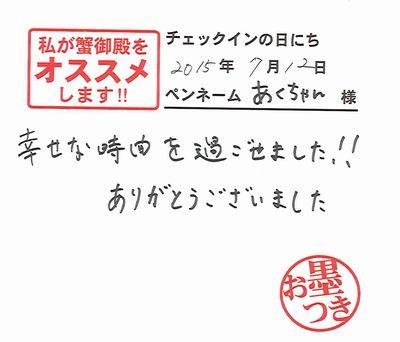 私が蟹御殿を
オススメ
します!!
チェックインの日にち
2015年 7月12日
ペンネーム あくちゃん 様
幸せな時間を過ごせました!!
ありがとうございました
お墨つき